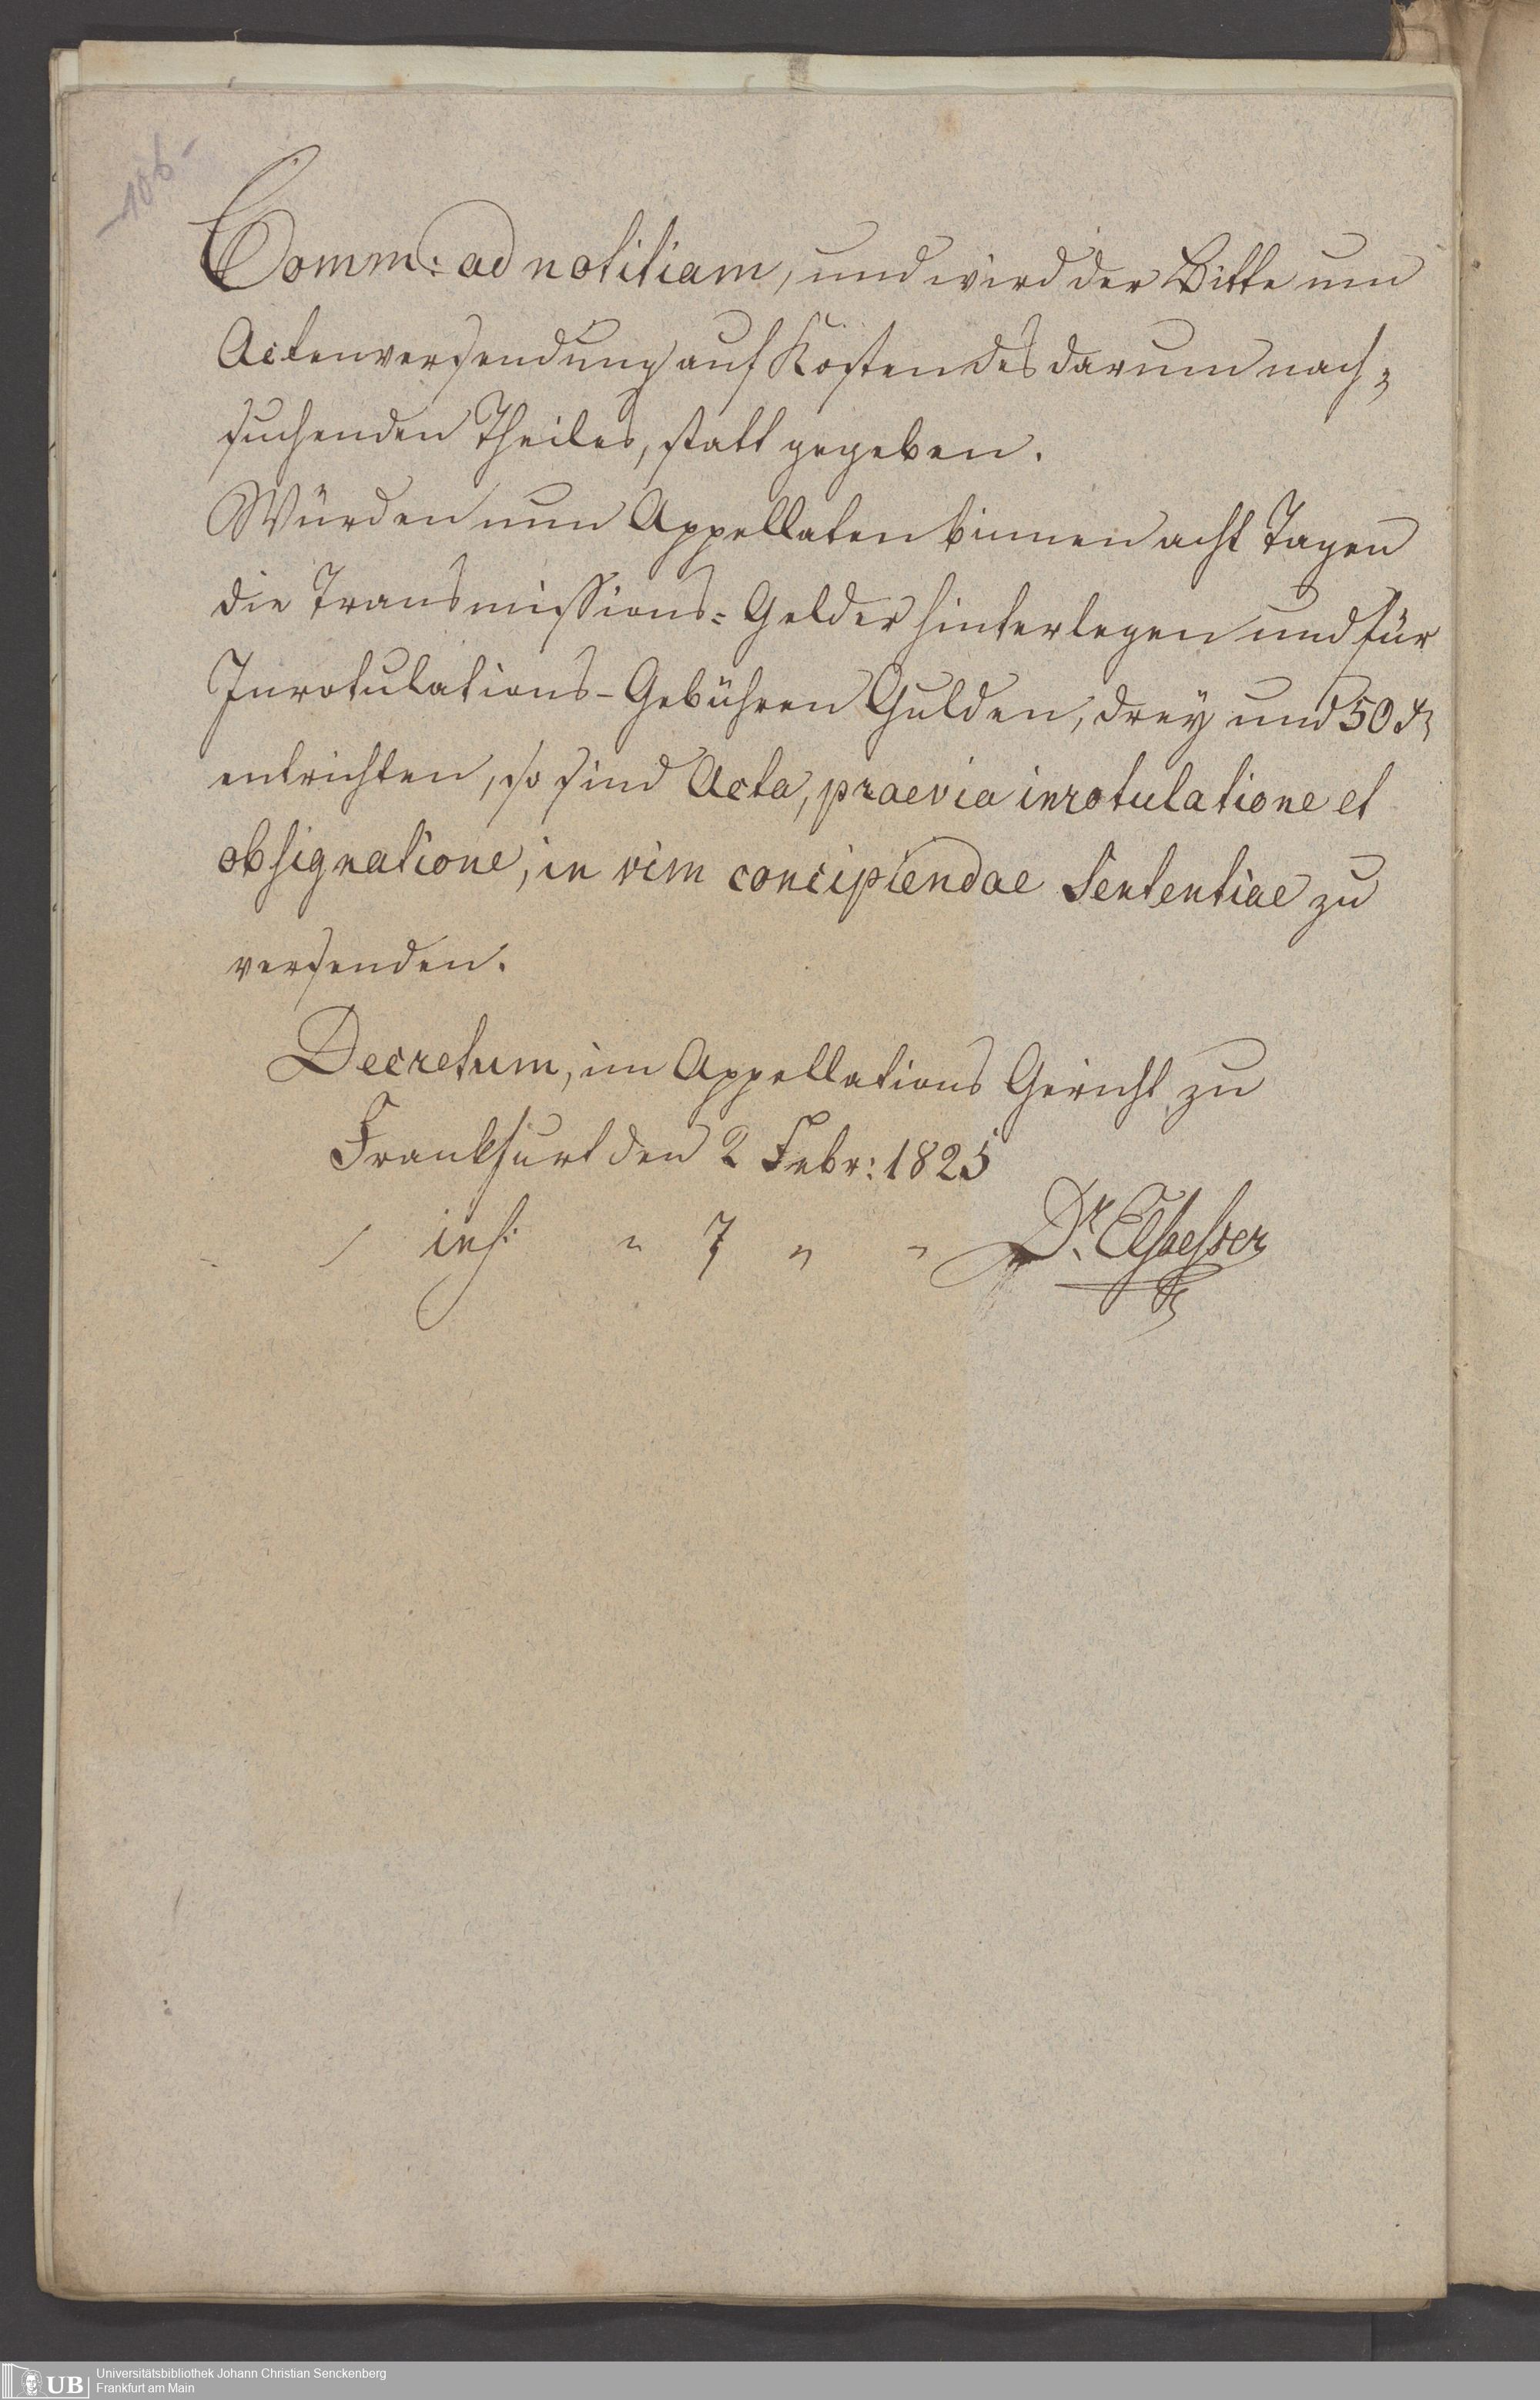 -106-
Comm: ad notitiam, und wird der Bitte um
Actenversendung auf Kosten des darum nach=
suchenden Theiles, statt gegeben.
Würden nun Appellaten binnen acht Tagen
die Transmissions=Gelder hinterlegen und für
Inrotulations-Gebühren Gulden, drey und 50 xr
entrichten, so sind Acta, praevia inrotulatione et
obsignatione, in vim concipiendae Sententiae zu
versenden.
Decretum, im Appellations Gericht zu
Frankfurt den 2 Febr: 1825
ins: " 7 " " Dr. Elsaesser
UB Universitätsbibliothek Johann Christian Senckenberg
Frankfurt am Main